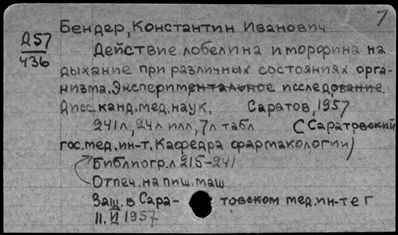 7
Бендер, Константин Иванович
Д57
436
Действие лобелина и морфина на
дыхание при различных состояниях орга-
низма. Экспериментальное исследование.
Дисс. канд. мед. наук. Саратов, 1957
241 л, 24 л илл, 7 л табл (Саратовский
гос. мед. ин-т, Кафедра фармакологии)
Библиогр. л 215-241
Отпеч. на пиш. маш
Защ. в Сара- товском мед. ин-те г
11.VI 1957